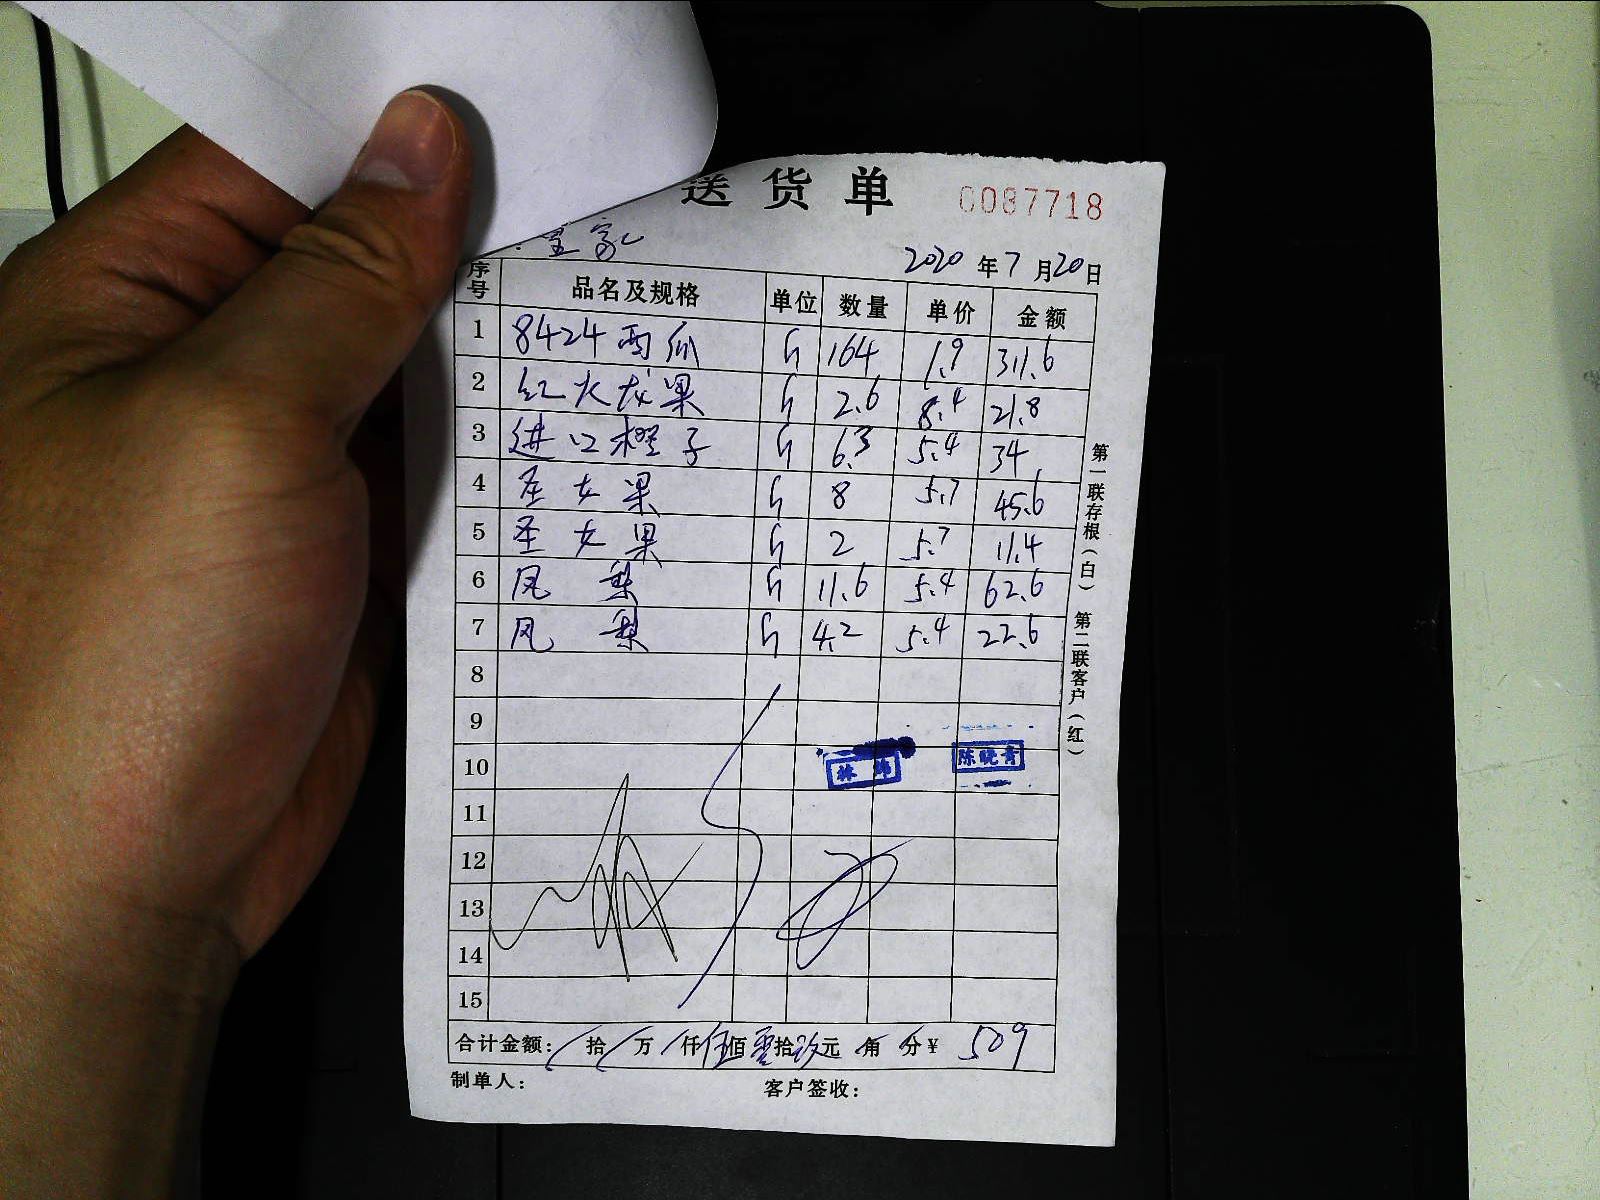 送货单 0087718
皇家
2020年7月20日
序号 品名及规格 单位 数量 单价 金额
1 8424西瓜 斤 164 1.9 311.6
2 红火龙果 斤 2.6 8.4 21.8
3 进口橙子 斤 6.3 5.4 34
4 圣女果 斤 8 5.7 45.6
5 圣女果 斤 2 5.7 11.4
6 凤梨 斤 11.6 5.4 62.6
7 凤梨 斤 4.2 5.4 22.6
8
9
10
陈晓青
11
12
13
14
15
合计金额: 拾 万 仟伍佰零拾玖元 角 分¥ 509
制单人: 客户签收:
第一联存根(白) 第二联客户(红)